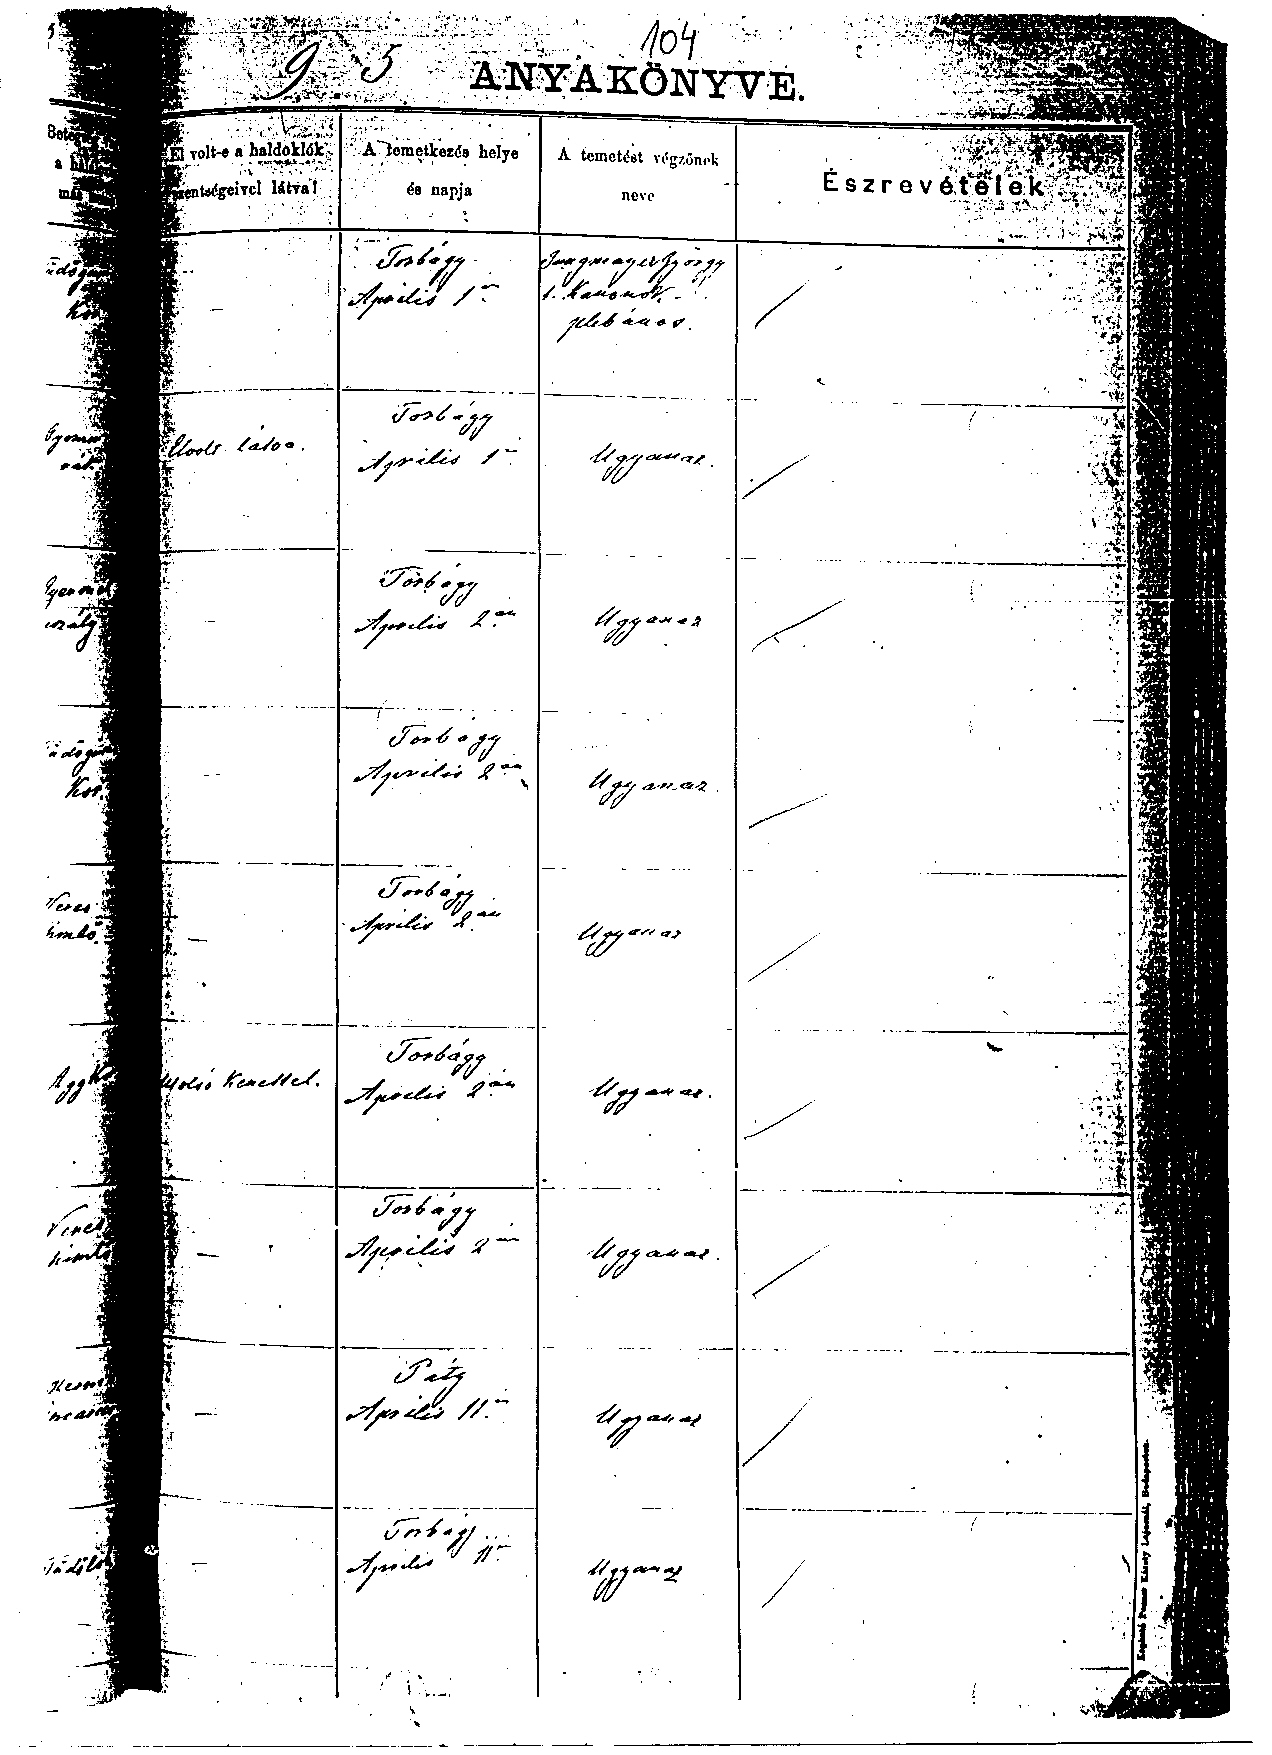 104
9 5
ANYAKÖNYVE.
El volt-e a haldoklók
szentségeivel látva?
A temetkezés helye
és napja
A temetést végzőnek
neve
Észrevételek
Torbágy
Április 1-
Jungmayer György
t. Kanonok
plebános.
—
Elvolt látva.
Torbágy
Április 1-
Ugyanaz.
Torbágy
Április 2-án
Ugyanaz
Torbágy
Április 2-án
—
Ugyanaz
Veres
himlő
Torbágy
Április 2-án
—
Ugyanaz
Utolsó Kenettel.
Torbágy
Április 2-án
Ugyanaz.
Torbágy
Április 2-án
—
Ugyanaz.
Páty
Április 11-
—
Ugyanaz
Torbágy
Április 11-
—
Ugyanaz